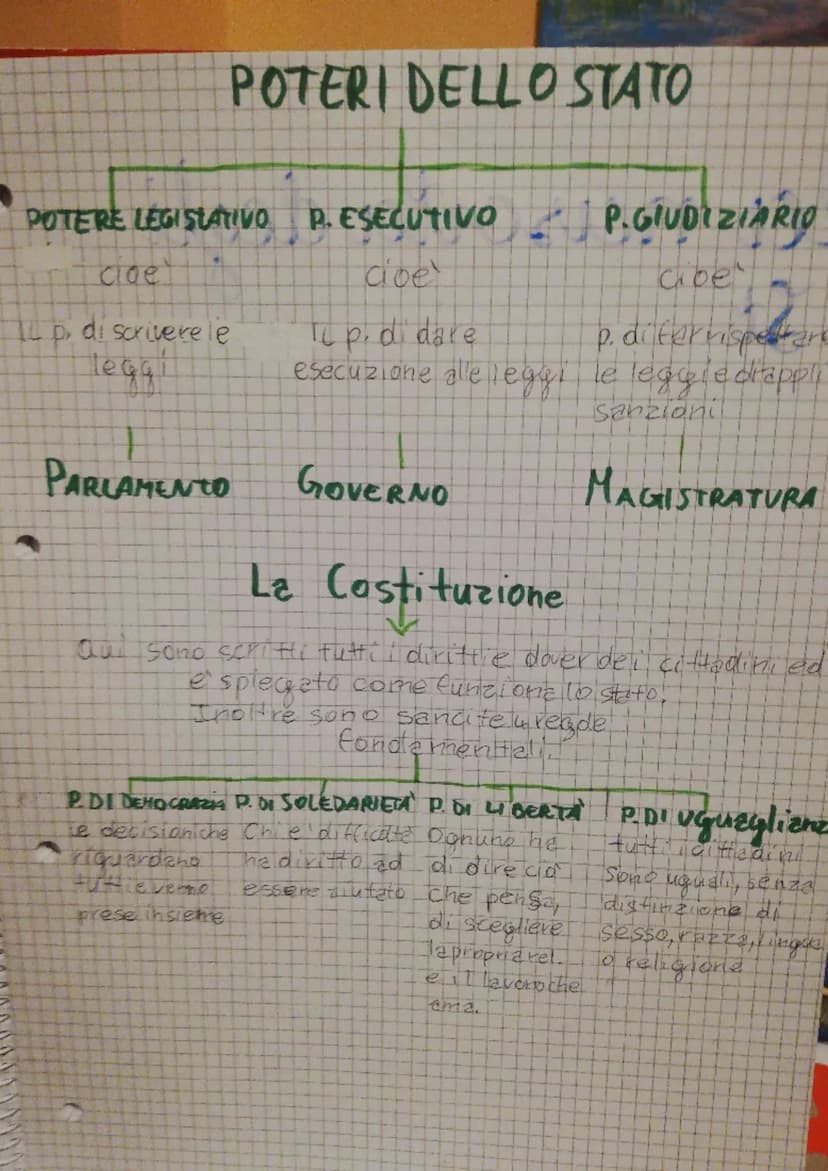 POTERI DELLO STATO
POTERE LEGISLATIVO P. ESECUTIVO P. GIUDIZIARIO
cioè cioè cioè
IL p. di scrivere le IL p. di dare p. di far rispettare
leggi esecuzione alle leggi le leggi ed appli
sanzioni
PARLAMENTO GOVERNO MAGISTRATURA
La Costituzione
Qui sono scritti tutti i diritti e dover dei cittadini ed
è spiegato come funziona lo stato.
Inoltre sono sancite le regole
fondamentali.
P. DI DEMOCRAZIA P. DI SOLEDARIETA' P. DI LIBERTA' P. DI Uguaglianz
le decisioni che Chi è difficoltà Ognuno ha tutti i cittadini
riguardano ha diritto ad di dire ciò sono uguali, senza
tutti essere aiutato che pensa, distinzione di
prese insieme di scegliere sesso, razza, lingua
la propria rel. o religione
e il lavoro che
ama.